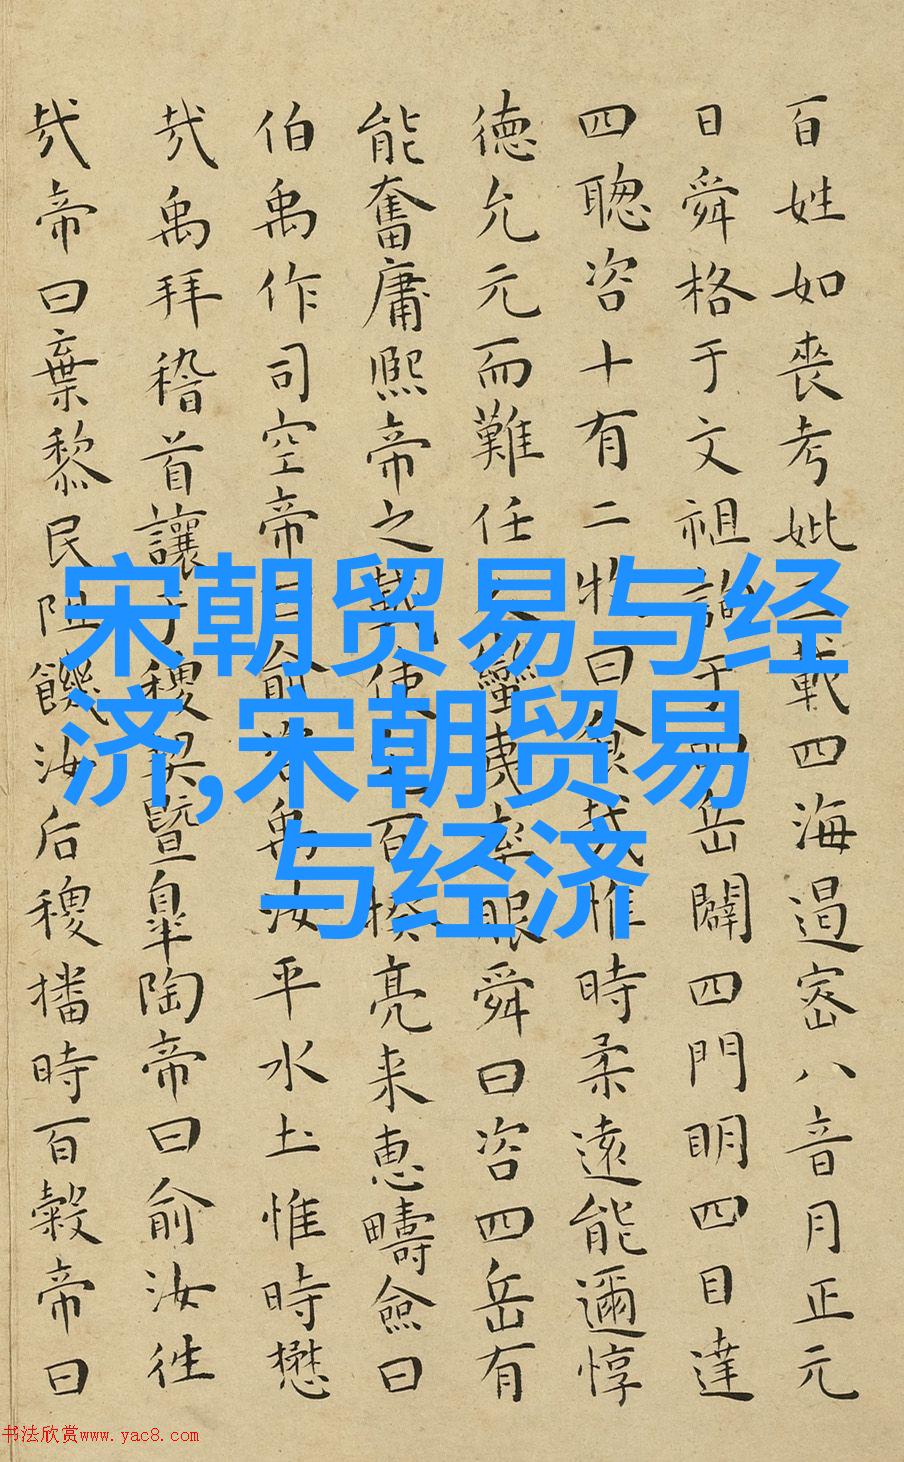 百姓如喪考妣載四海遏密八音月正元
日舜格于文祖詢于四岳闢四門明四目達
四聰咨十有二牧曰食哉惟時柔遠能邇惇
德允元而難任蠻夷率服舜曰咨四岳有
能奮庸熙帝之載使百揆亮来惠疇僉曰
伯禹作司空帝曰俞咨禹汝平水土惟時懋
哉禹拜稽首讓于稷契暨皐陶帝曰俞汝往
哉帝曰棄黎民阻饑汝后稷播時百穀帝曰
宋朝贸易与经
济,宋朝贸易
与经济
书法欣赏www.yac8.com